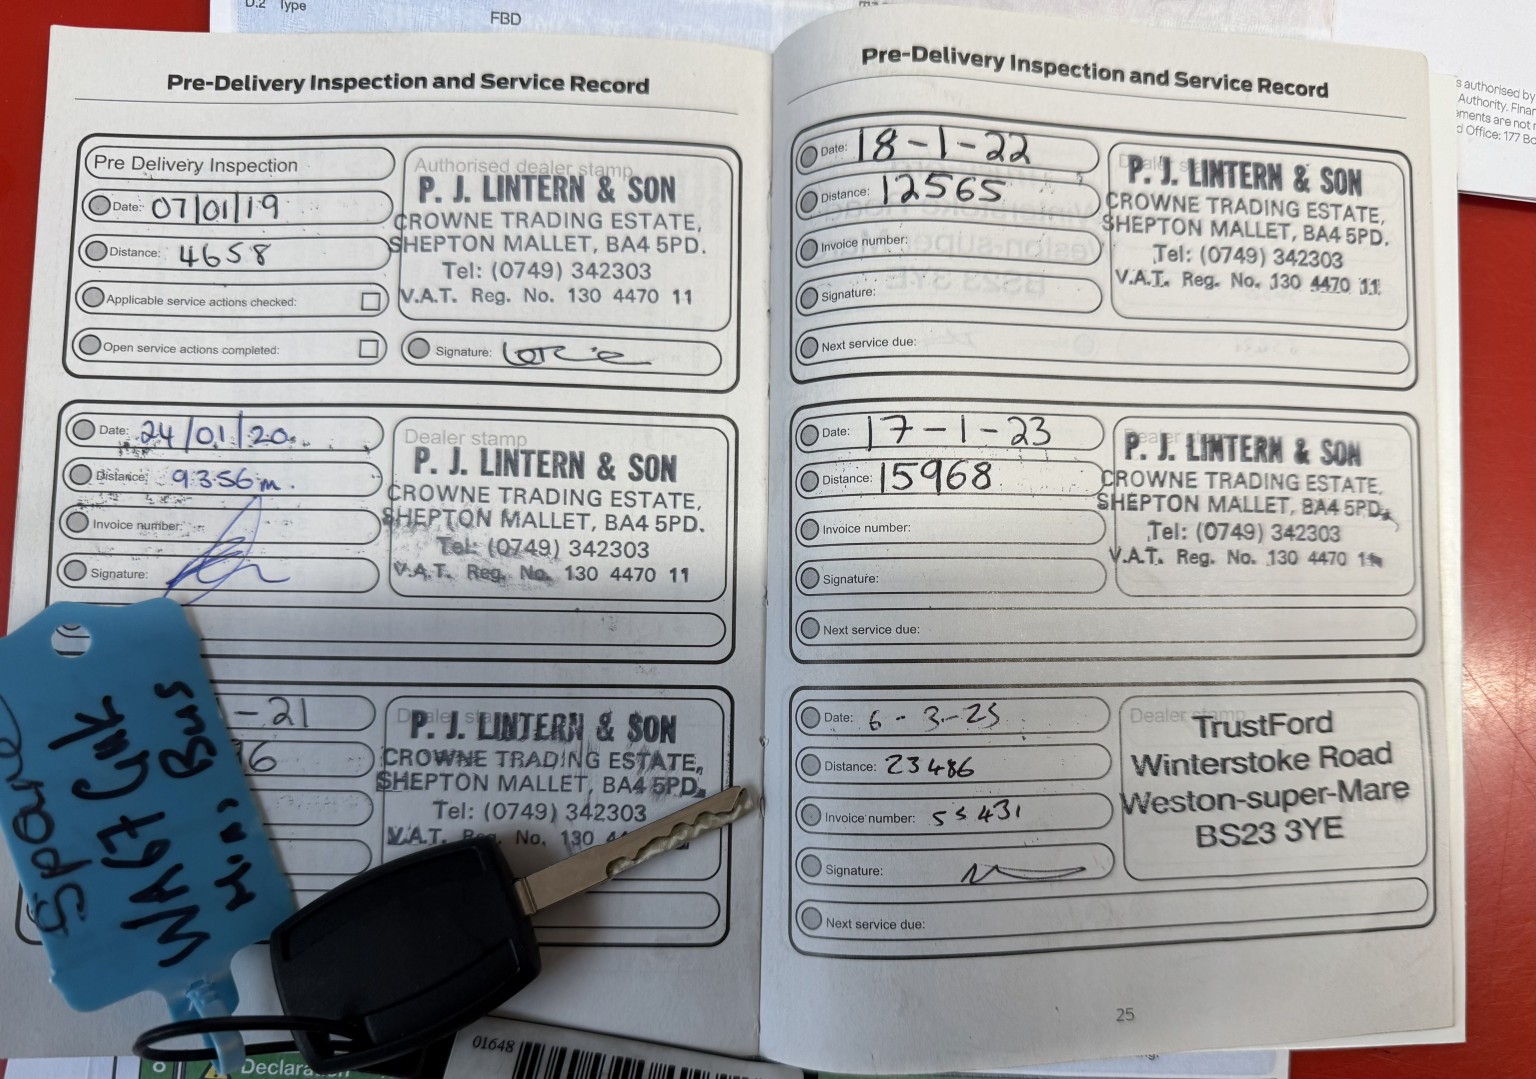 D.2 Type
FBD
Pre-Delivery Inspection and Service Record
Pre Delivery Inspection
Date: 07/01/19
Distance: 4658
Applicable service actions checked:
Open service actions completed:
Authorised dealer stamp
P. J. LINTERN & SON
CROWNE TRADING ESTATE,
SHEPTON MALLET, BA4 5PD.
Tel: (0749) 342303
V.A.T. Reg. No. 130 4470 11
Signature:
Date: 24/01/20
Distance: 9356m.
Invoice number:
Signature:
Dealer stamp
P. J. LINTERN & SON
CROWNE TRADING ESTATE,
SHEPTON MALLET, BA4 5PD.
Tel: (0749) 342303
V.A.T. Reg. No. 130 4470 11
-21
96
P. J. LINTERN & SON
CROWNE TRADING ESTATE,
SHEPTON MALLET, BA4 5PD.
Tel: (0749) 342303
V.A.T. Reg. No. 130
Spare
WA67
Bus
Pre-Delivery Inspection and Service Record
Date: 18-1-22
Distance: 12565
Invoice number:
Signature:
Next service due:
Dealer stamp
P. J. LINTERN & SON
CROWNE TRADING ESTATE,
SHEPTON MALLET, BA4 5PD.
Tel: (0749) 342303
V.A.T. Reg. No. 130 4470 11
Date: 17-1-23
Distance: 15968
Invoice number:
Signature:
Next service due:
Dealer stamp
P. J. LINTERN & SON
CROWNE TRADING ESTATE,
SHEPTON MALLET, BA4 5PD.
Tel: (0749) 342303
V.A.T. Reg. No. 130 4470 11
Date: 6-3-25
Distance: 23486
Invoice number: 55431
Signature:
Next service due:
Dealer stamp
TrustFord
Winterstoke Road
Weston-super-Mare
BS23 3YE
25
s authorised by
Authority. Finan
ements are not r
d Office: 177 Bo
01648
Declaration